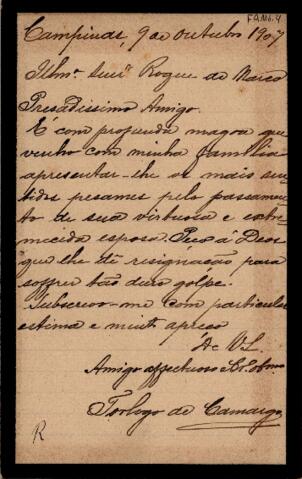 FAMb.4
Campinas, 9 de Outubro 1907
Illmo. Snr. Roque de Marco
Presadissimo Amigo.
É com profunda magoa que
venho com minha familia
apresentar-lhe os mais sen-
tidos pesames pelo passamen-
to de sua virtuosa e estre-
mecida esposa. Peço á Deos
que lhe dê resignação para
soffrer tão duro golpe.
Subscrevo-me com particular
estima e muito apreço
De V.S.
Amigo affectuoso e Obro.
de Camargo
R